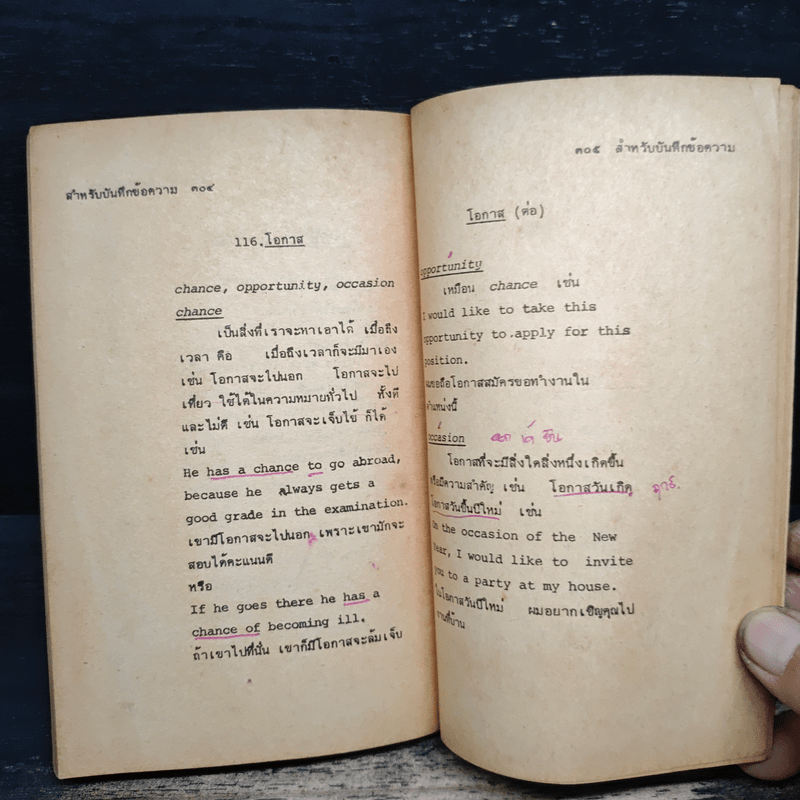 สำหรับบันทึกข้อความ ๓๐๔
116. โอกาส
chance, opportunity, occasion
chance
เป็นสิ่งที่เราจะหาเอาได้ เมื่อถึง
เวลา คือ เมื่อถึงเวลาก็จะมีมาเอง
เช่น โอกาสจะไปนอก โอกาสจะไป
เที่ยว ใช้ได้ในความหมายทั่วไป ทั้งดี
และไม่ดี เช่น โอกาสจะเจ็บไข้ ก็ได้
เช่น
He has a chance to go abroad,
because he always gets a
good grade in the examination.
เขามีโอกาสจะไปนอก เพราะเขามักจะ
สอบได้คะแนนดี
หรือ
If he goes there he has a
chance of becoming ill.
ถ้าเขาไปที่นั่น เขาก็มีโอกาสจะล้มเจ็บ
๓๐๕ สำหรับบันทึกข้อความ
โอกาส (ต่อ)
opportunity
เหมือน chance เช่น
I would like to take this
opportunity to apply for this
position.
ผมขอถือโอกาสสมัครขอทำงานใน
ตำแหน่งนี้
occasion
โอกาสที่จะมีสิ่งใดสิ่งหนึ่งเกิดขึ้น
หรือมีความสำคัญ เช่น โอกาสวันเกิด
โอกาสวันขึ้นปีใหม่ เช่น
On the occasion of the New
Year, I would like to invite
you to a party at my house.
ในโอกาสวันปีใหม่ ผมอยากเชิญคุณไป
งานที่บ้าน